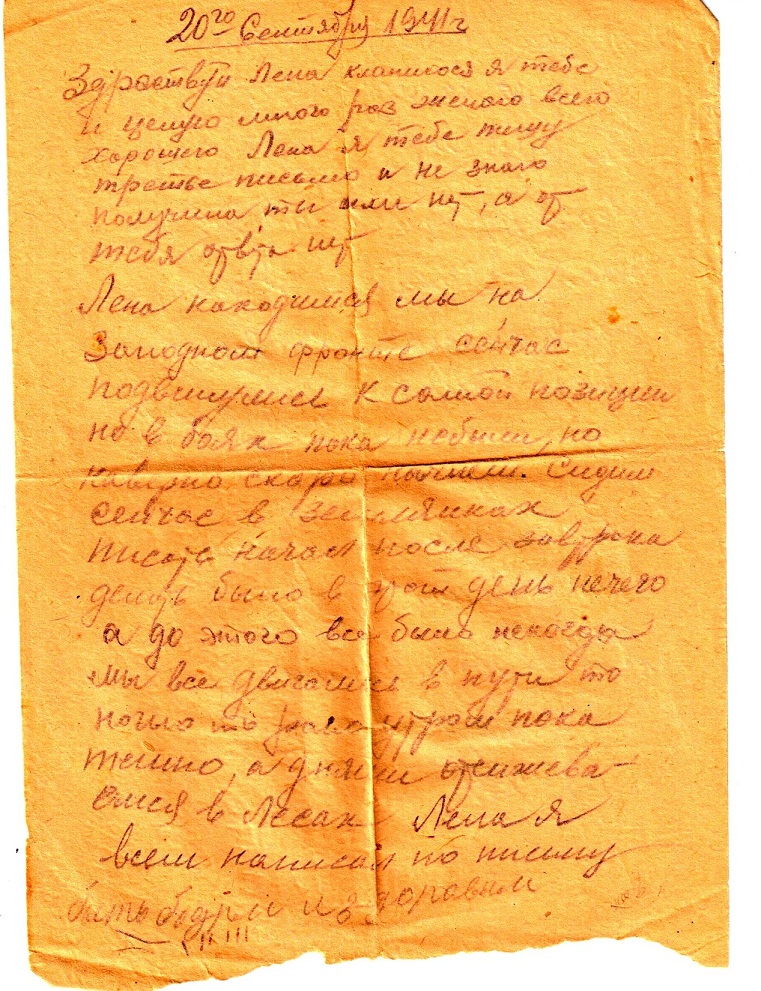 20го Сентября 1941г
Здраствути Лена кланиюся я тебе
и целую много раз желаю всего
хорошего Лена я тебе пишу
третье письмо и не знаю
получила ти или нет, а от
тебя ответа нет
Лена находимся мы на
Западном фронте сейчас
подвинулись к самой позиции
но в боях пока небыли, но
наверно скоро начнем. Сидим
сейчас в землянках
писать начал после завтрака
делать было в этот день нечего
а до этого все было некогда
мы все двигались в пути то
ночью то рано утром пока
темно, а днями отсижева-
емся в лесах Лена я
всем написал по письму
быть бодрим и здоровым